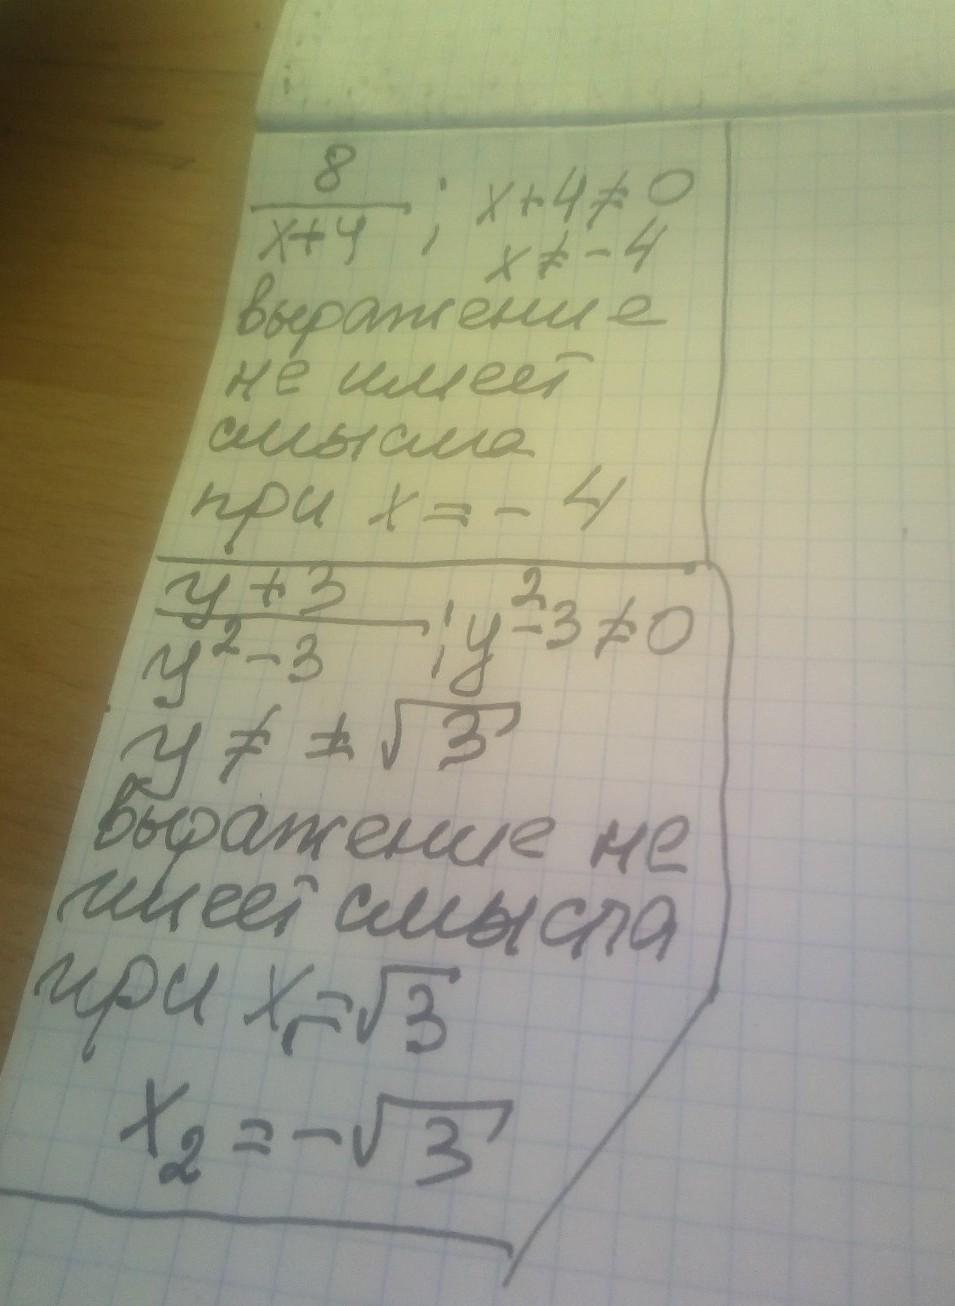 8/(x+4) ; x+4≠0
x≠-4
выражение
не имеет
смысла
при x=-4
(y+3)/(y²-3) ; y²-3≠0
y ≠ ±√3
выражение не
имеет смысла
при x₁=√3
x₂=-√3